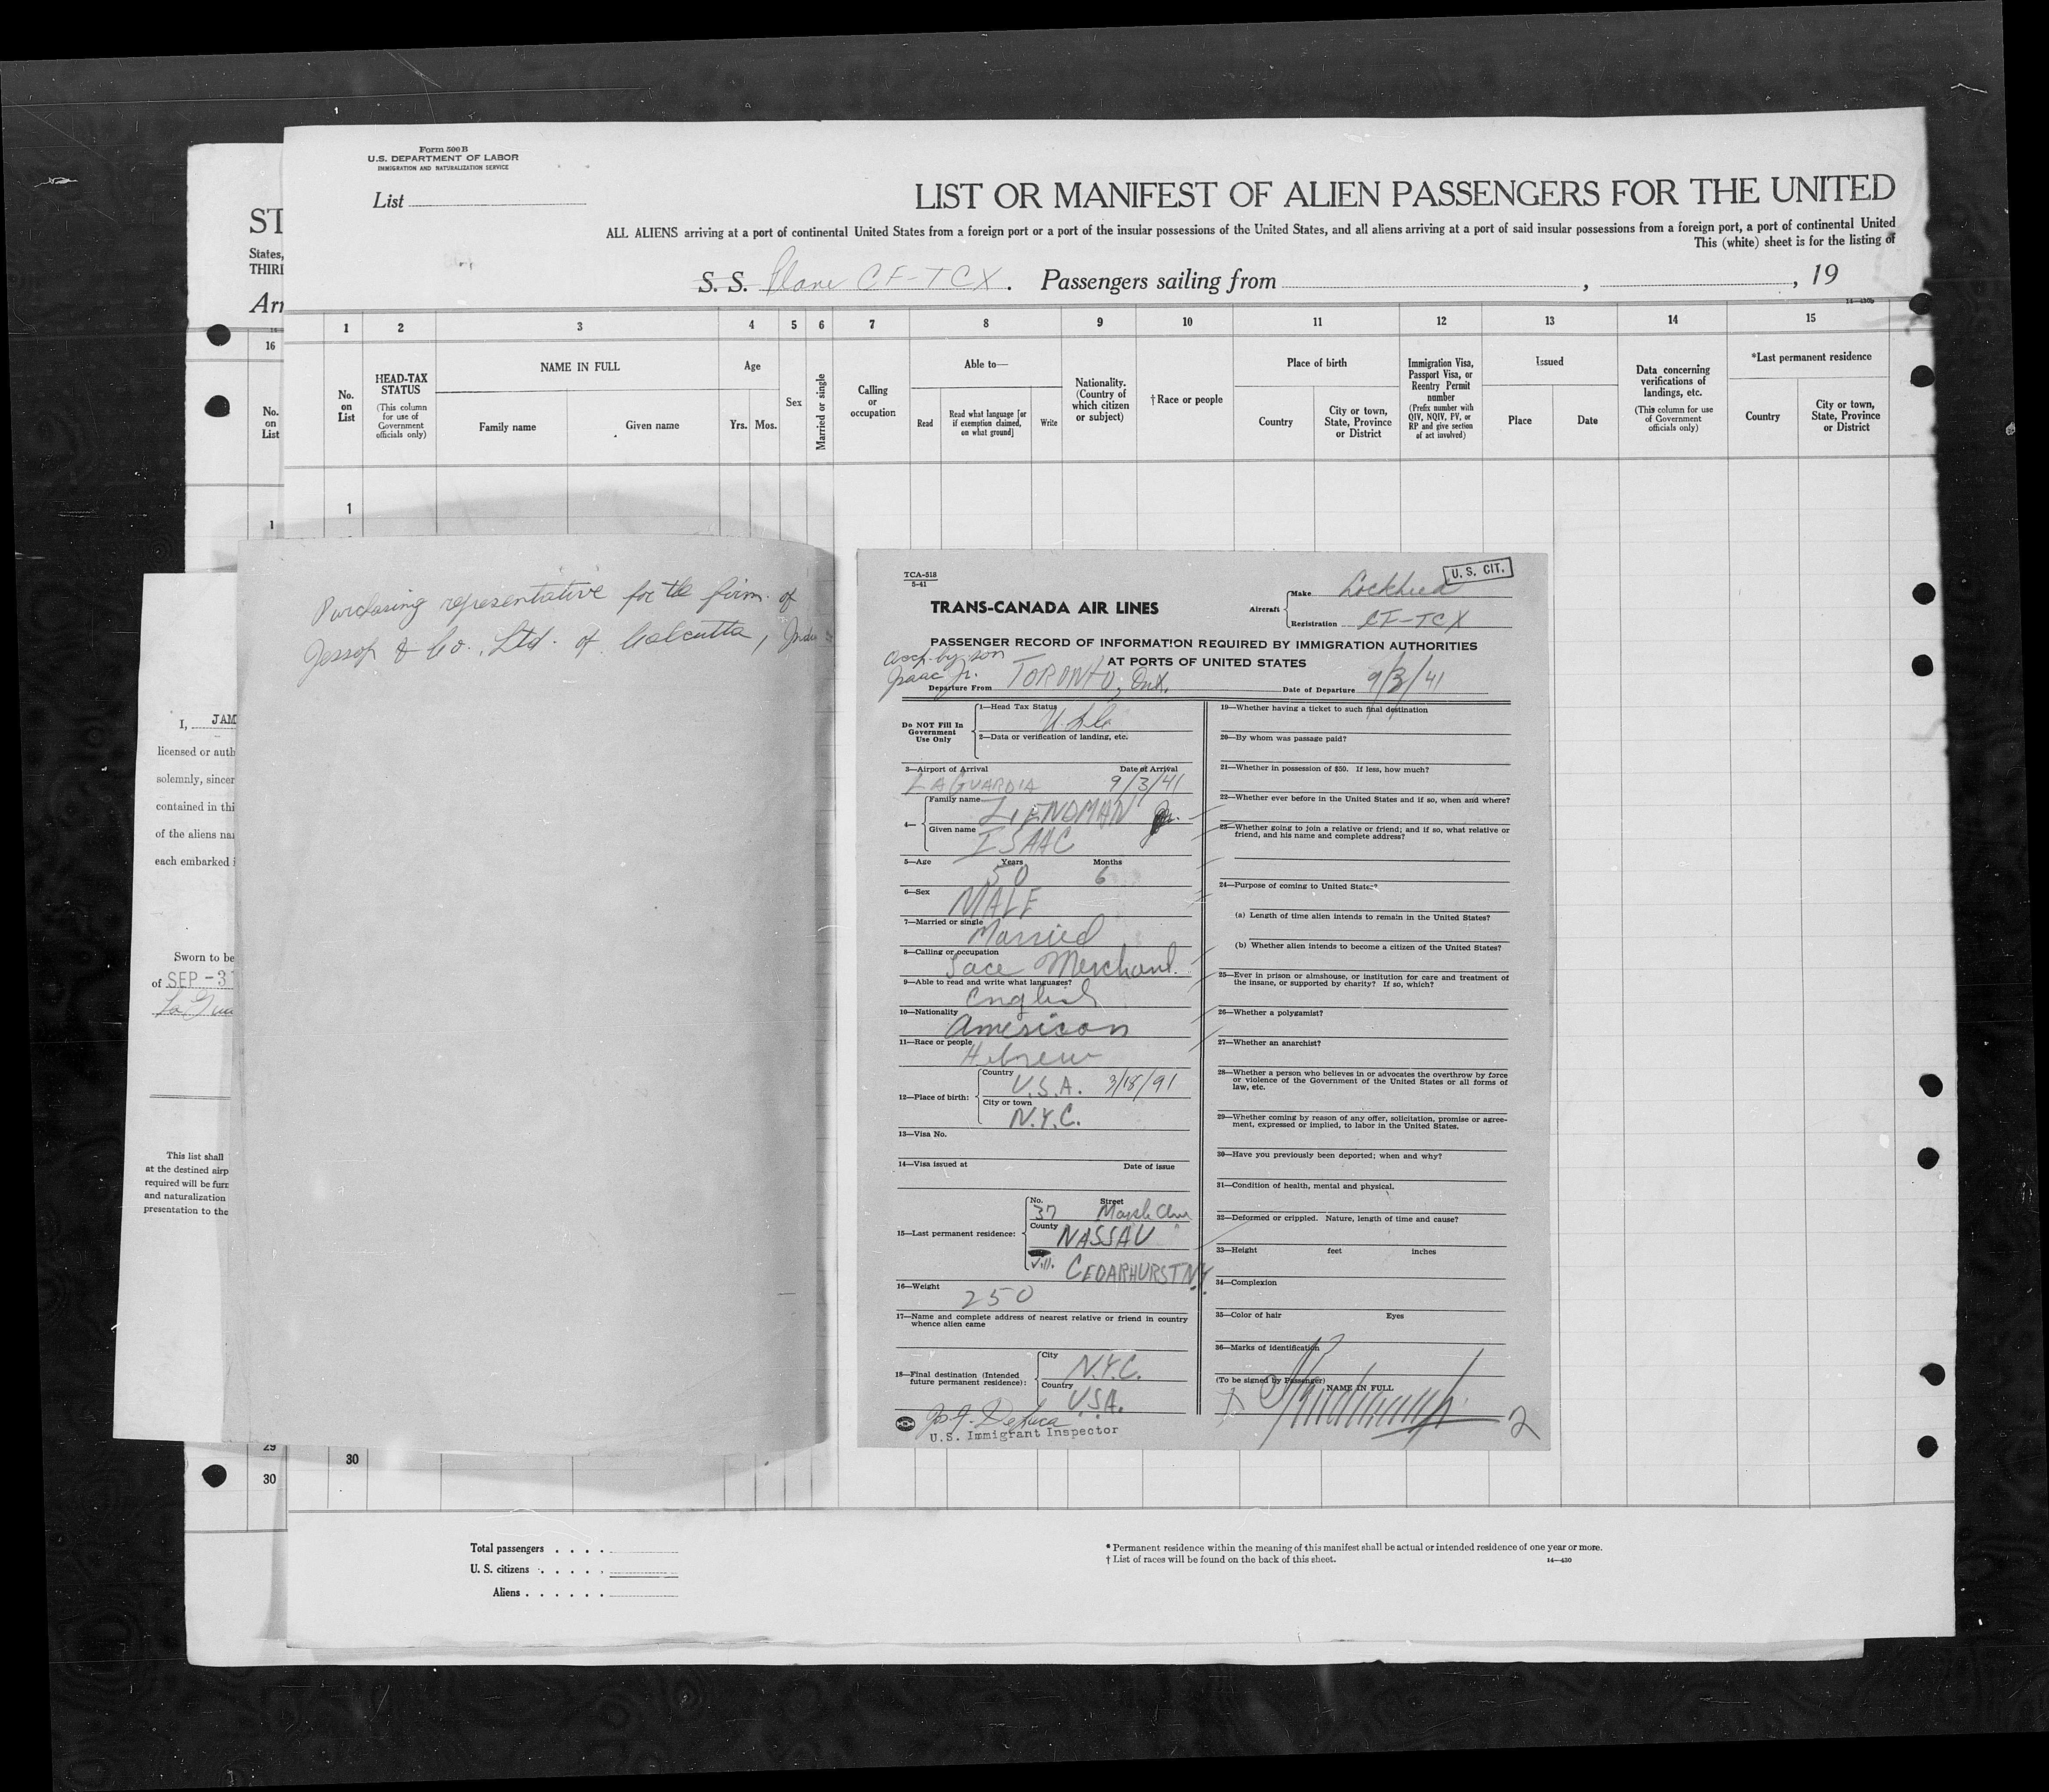 Form 500 B
U.S. DEPARTMENT OF LABOR
IMMIGRATION AND NATURALIZATION SERVICE
List
LIST OR MANIFEST OF ALIEN PASSENGERS FOR THE UNITED
ALL ALIENS arriving at a port of continental United States from a foreign port or a port of the insular possessions of the United States, and all aliens arriving at a port of said insular possessions from a foreign port, a port of continental United
This (white) sheet is for the listing of
S. S. Plane CF-TCX. Passengers sailing from , , 19
14—430b
ST
States,
THIRD
Arr
16
No.
on
List
1
29
30
1 2 3 4 5 6 7 8 9 10 11 12 13 14 15
No. on List
HEAD-TAX STATUS
(This column for use of Government officials only)
NAME IN FULL
Family name Given name
Age
Yrs. Mos.
Sex
Married or single
Calling or occupation
Able to—
Read
Read what language [or if exemption claimed, on what ground]
Write
Nationality. (Country of which citizen or subject)
†Race or people
Place of birth
Country
City or town, State, Province or District
Immigration Visa, Passport Visa, or Reentry Permit number
(Prefix number with QIV, NQIV, PV, or RP and give section of act involved)
Issued
Place Date
Data concerning verifications of landings, etc.
(This column for use of Government officials only)
*Last permanent residence
Country
City or town, State, Province or District
1
30
Purchasing representative for the firm of
Jessop & Co., Ltd. of Calcutta, India
I, JAM
licensed or auth
solemnly, sincer
contained in thi
of the aliens nar
each embarked i
Sworn to be
of SEP -3 1
La Gua
This list shall
at the destined airp
required will be furr
and naturalization
presentation to the
TCA-518
5-41
U. S. CIT.
TRANS-CANADA AIR LINES
Aircraft
Make Lockheed
Registration CF-TCX
PASSENGER RECORD OF INFORMATION REQUIRED BY IMMIGRATION AUTHORITIES
AT PORTS OF UNITED STATES
acc. by son
Isaac Jr.
Departure From TORONTO, Ont. Date of Departure 9/3/41
Do NOT Fill In
Government
Use Only
1—Head Tax Status
2—Data or verification of landing, etc.
3—Airport of Arrival Date of Arrival
LAGUARDIA 9/3/41
4—
Family name LIENDMAN
Given name ISAAC
5—Age Years Months
50 6
6—Sex
MALE
7—Married or single
Married
8—Calling or occupation
Lace Merchant.
9—Able to read and write what languages?
English
10—Nationality
American
11—Race or people
Hebrew
12—Place of birth:
Country
U.S.A. 3/18/91
City or town
N.Y.C.
13—Visa No.
14—Visa issued at Date of issue
15—Last permanent residence:
No. Street
37
County
NASSAU
Vill.
CEDARHURST N.Y.
16—Weight
250
17—Name and complete address of nearest relative or friend in country
whence alien came
18—Final destination (Intended
future permanent residence):
City
N.Y.C.
Country
U.S.A.
Jos. J. DeLuca
U.S. Immigrant Inspector
19—Whether having a ticket to such final destination
20—By whom was passage paid?
21—Whether in possession of $50. If less, how much?
22—Whether ever before in the United States and if so, when and where?
23—Whether going to join a relative or friend; and if so, what relative or
friend, and his name and complete address?
24—Purpose of coming to United States?
(a) Length of time alien intends to remain in the United States?
(b) Whether alien intends to become a citizen of the United States?
25—Ever in prison or almshouse, or institution for care and treatment of
the insane, or supported by charity? If so, which?
26—Whether a polygamist?
27—Whether an anarchist?
28—Whether a person who believes in or advocates the overthrow by force
or violence of the Government of the United States or all forms of
law, etc.
29—Whether coming by reason of any offer, solicitation, promise or agree-
ment, expressed or implied, to labor in the United States.
30—Have you previously been deported; when and why?
31—Condition of health, mental and physical.
32—Deformed or crippled. Nature, length of time and cause?
33—Height feet inches
34—Complexion
35—Color of hair Eyes
36—Marks of identification
(To be signed by Passenger)
NAME IN FULL
2
Total passengers . . . .
U. S. citizens . . . . .
Aliens . . . . . .
* Permanent residence within the meaning of this manifest shall be actual or intended residence of one year or more.
† List of races will be found on the back of this sheet. 14—430